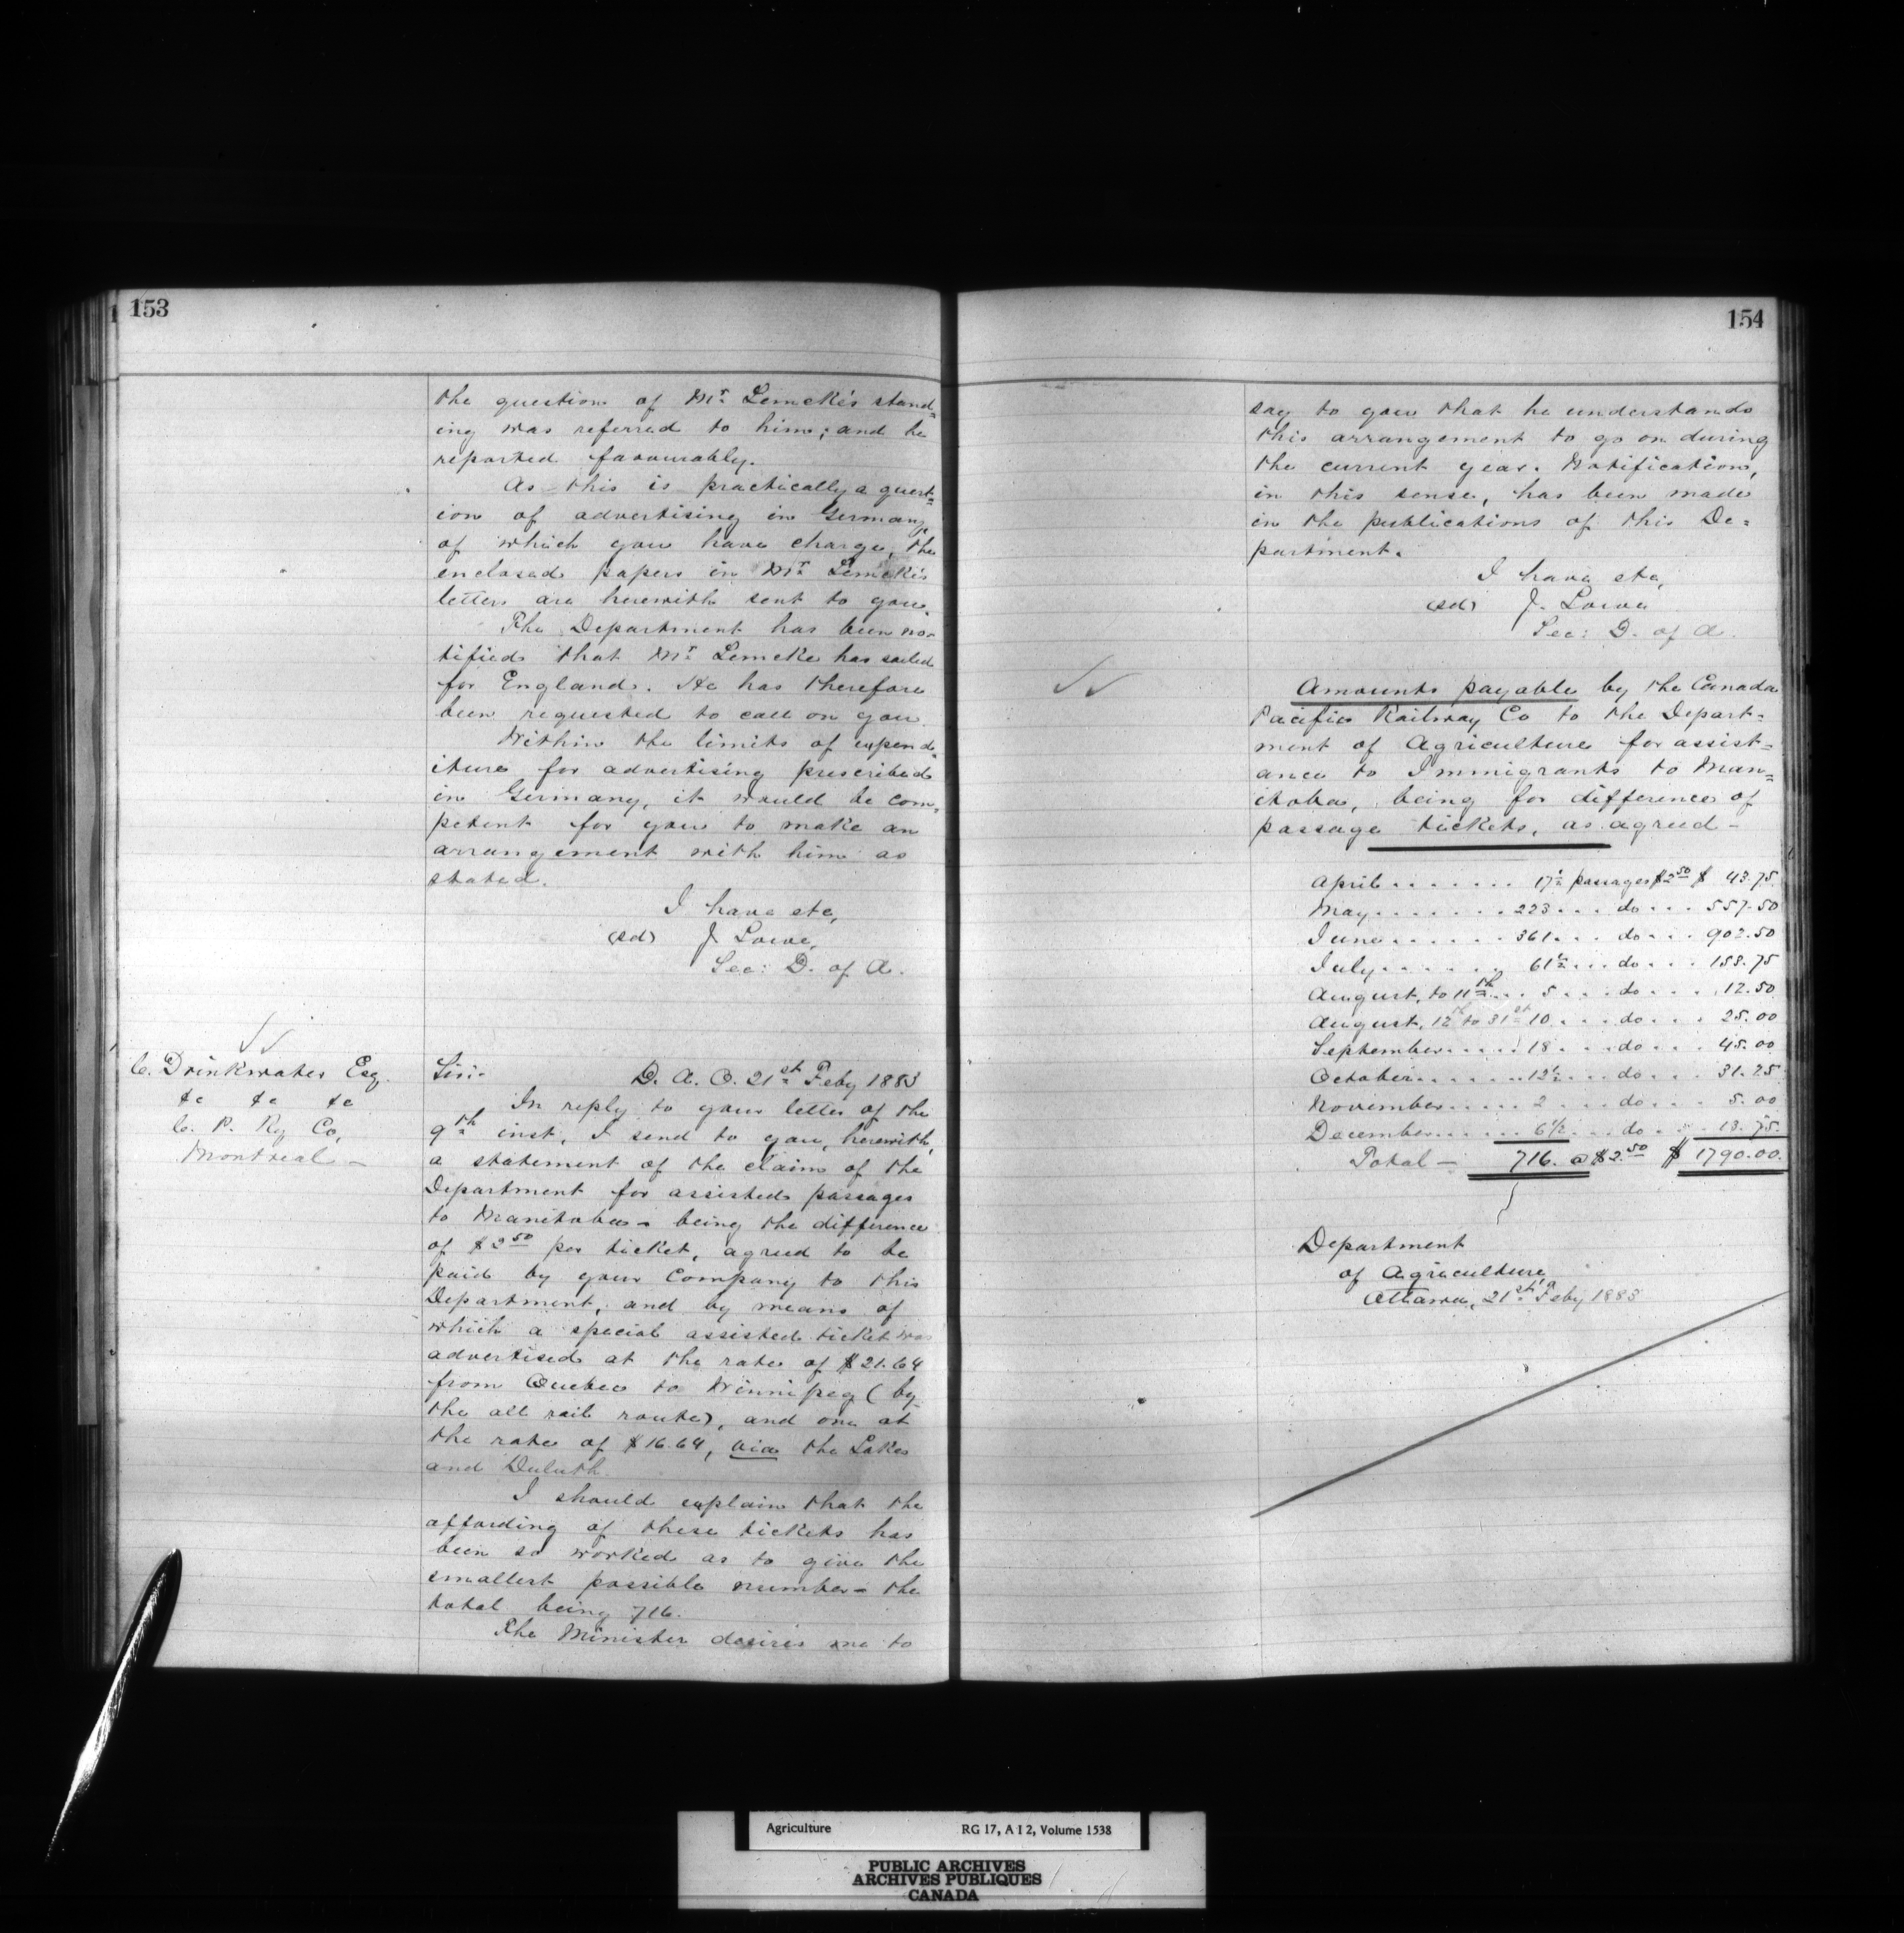 153
the question of Mr. Lemcke's stand=
ing was referred to him; and he
reported favourably.
As this is practically a quest=
ion of advertising in Germany,
of which you have charge, the
enclosed papers in Mr. Lemcke's
letters are herewith sent to you.
The Department has been no-
tified that Mr. Lemcke has sailed
for England. He has therefore
been requested to call on you.
Within the limits of expend=
iture for advertising prescribed
in Germany, it would be com=
petent for you to make an
arrangement with him as
stated.
I have etc,
(sd) J. Lowe,
Sec: D. of A.
C. Drinkwater Esq.
&c &c &c
C. P. Ry Co,
Montreal —
Sir:-
D. A. O. 21st Feby 1883
In reply to your letter of the
9th inst, I send to you, herewith,
a statement of the claim of the
Department for assisted passages
to Manitoba - being the difference
of $2.50 per ticket, agreed to be
paid by your Company to this
Department, and by means of
which a special assisted ticket was
advertised at the rate of $21.64
from Quebec to Winnipeg (by
the all rail route), and one at
the rate of $16.64, via the Lakes
and Duluth.
I should explain that the
affording of these tickets has
been so worked as to give the
smallest possible number - the
total being 716.
The Minister desires me to
154
say to you that he understands
this arrangement to go on during
the current year. Notification,
in this sense, has been made
in the publications of this De=
partment.
I have etc,
(sd) J. Lowe
Sec: D. of A.
Amounts payable by the Canada
Pacific Railway Co to the Depart=
ment of Agriculture for assist=
ance to Immigrants to Man=
itoba, being for difference of
passage tickets, as agreed -
April ....... 17½ passages $2.50 $ 43.75
May ....... 223 ... do ... 557.50
June ...... 361 ... do ... 902.50
July ...... 61½ ... do ... 153.75
August, to 11th ... 5 ... do ... 12.50
August, 12th to 31st 10 ... do ... 25.00
September ..... 18 ... do ... 45.00
October ....... 12½ ... do ... 31.25
November ..... 2 ... do ... 5.00
December ...... 6½ ... do ... 13.75
Total — 716. @ $2.50 $ 1790.00.
Department
of Agriculture,
Ottawa, 21st Feby 1883
Agriculture RG 17, A I 2, Volume 1538
PUBLIC ARCHIVES
ARCHIVES PUBLIQUES
CANADA